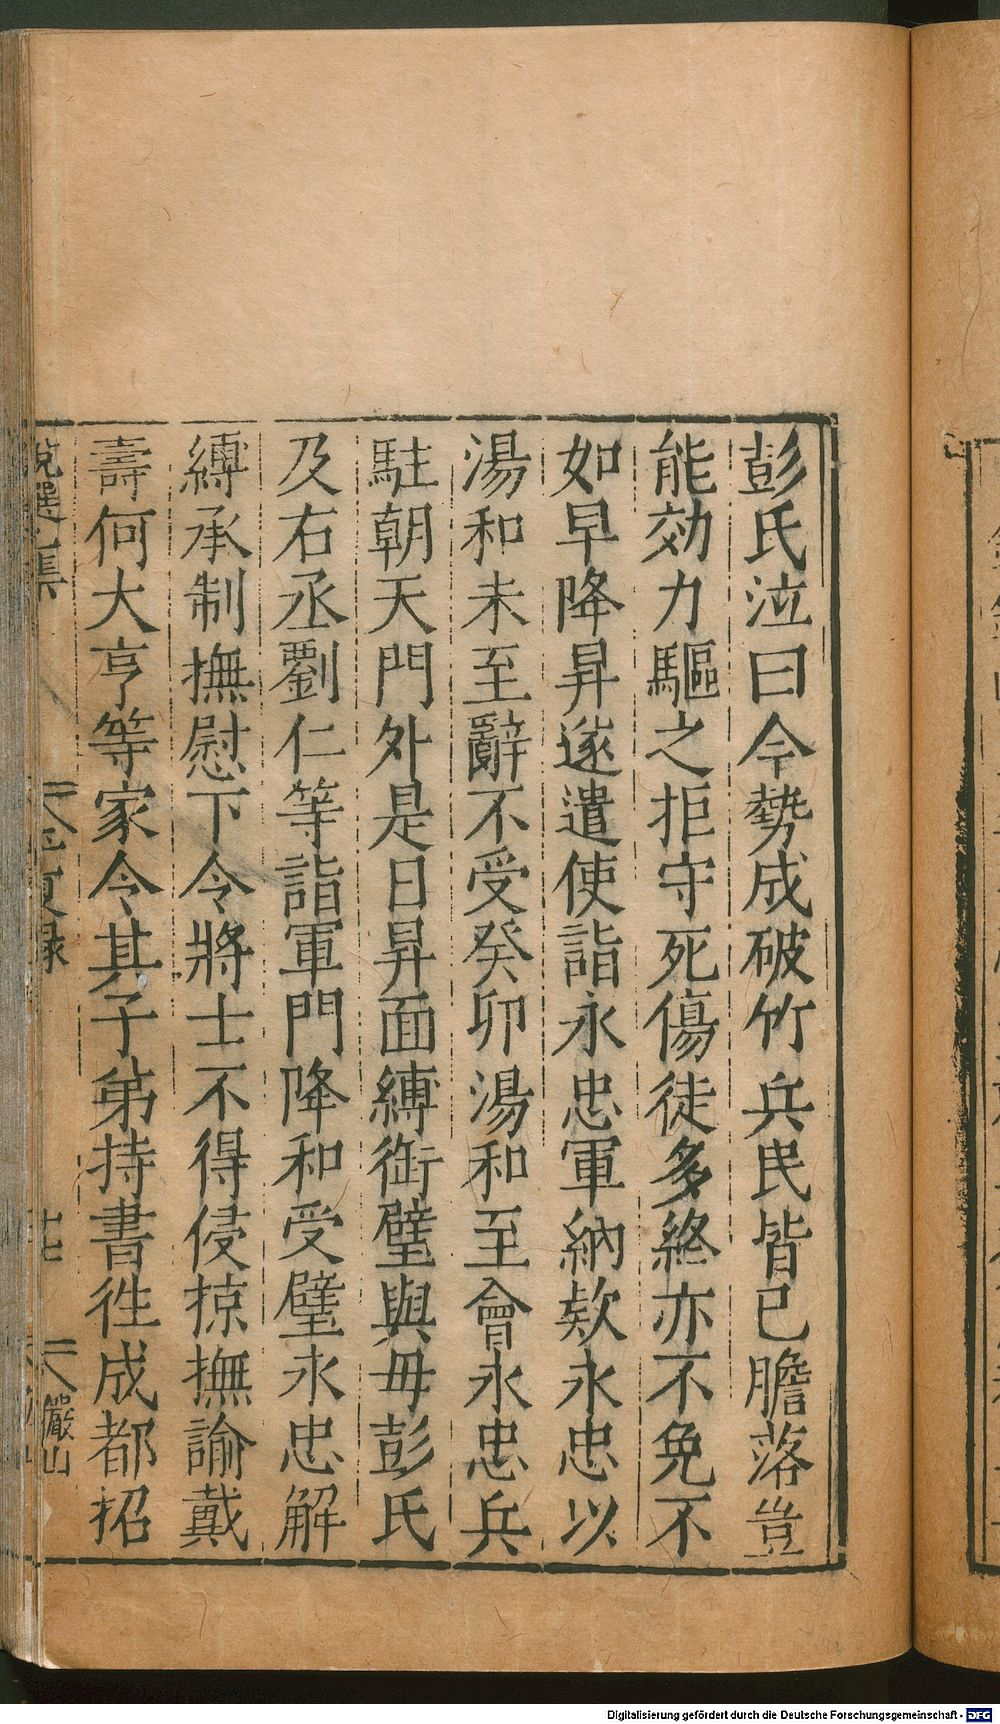 彭氏泣曰今勢成破竹兵民皆已膽落豈
能効力驅之拒守死傷徒多終亦不免不
如早降昇遂遣使詣永忠軍納欵永忠以
湯和未至辭不受癸卯湯和至會永忠兵
駐朝天門外是日昇面縛銜璧與毋彭氏
及右丞劉仁等詣軍門降和受璧永忠解
縛承制撫慰下令將士不得侵掠撫諭戴
壽何大亨等家令其子弟持書徃成都招
十七
嚴山
Digitalisierung gefördert durch die Deutsche Forschungsgemeinschaft - DFG